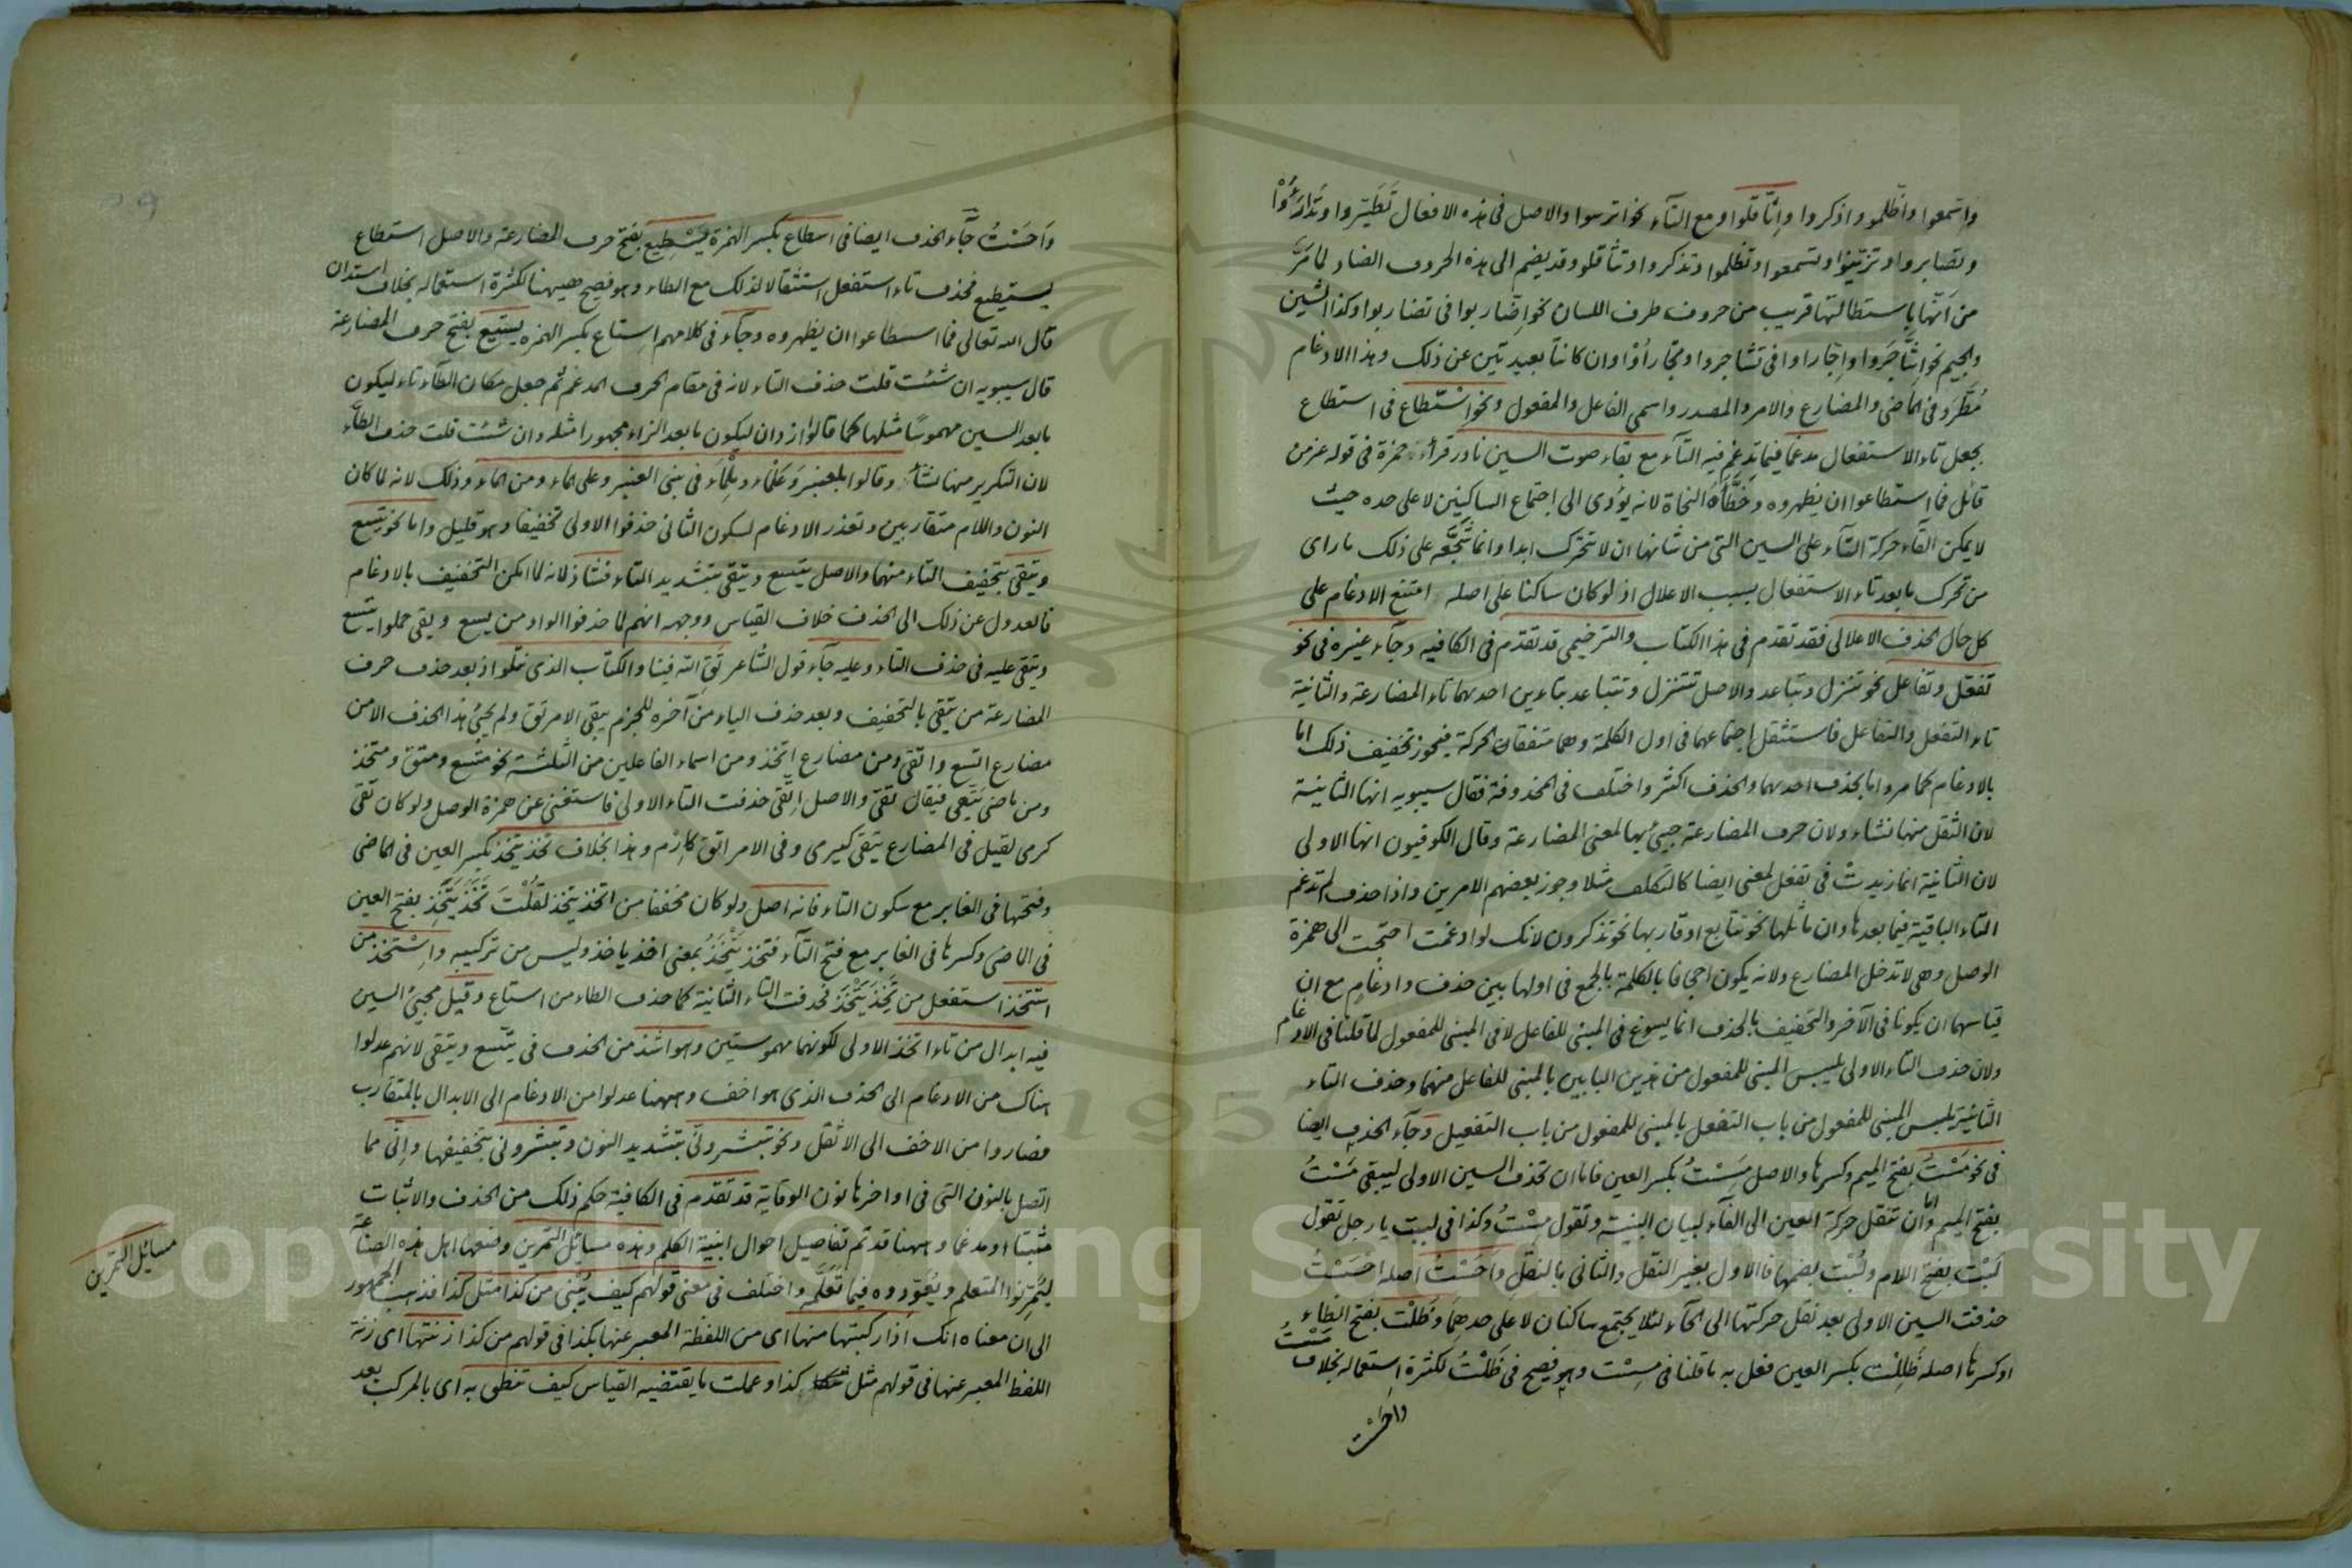 واسّمعوا واظّلموا واذّكروا واثّاقلوا ومع التآء نحو اترسوا والاصل فى هذه الافعال تَطَيّروا وتَدَارَءُوْا
وتصابروا وتزيّنوا وتسمعوا وتظلموا وتذكروا وتثاقلوا وقد يضم الى هذه الحروف الضاد لما مَرَّ
من اَنّها باستطالتها قريب من حروف طرف اللسان نحو اِضّاربوا فى تضاربوا وكذا الشين
والجيم نحو اِشَّاجَروا واِجّاراوا فى تشاجروا وتجارأوْا وان كانتا بعيدتين عن ذلك وهذا الادغام
مُطّرَد فى الماضى والمضارع والامر والمصدر واسمى الفاعل والمفعول ونحو اسْتّطاع فى استطاع
بجعل تاء الاستفعال مدغما فيما تدغم فيه التآء مع بقاء صوت السين نادر قرأ حمزة فى قوله عز من
قائل فما اسطاعوا ان يظهروه وخَطَّأَهُ النحاة لانه يؤدى الى اجتماع الساكنين لا على حده حيث
لا يمكن القآء حركة التآء على السين التى من شانها ان لا تتحرك ابدا وانما شَجَّعَه على ذلك ما راى
من تحرك ما بعد تاء الاستفعال بسبب الاعلال اذ لو كان ساكنا على اصله امتنع الادغام على
كل حال الحذف الاعلالى فقد تقدم فى هذا الكتاب والترخيمى قد تقدم فى الكافيه وجآء غيره فى نحو
تفعّل وتفاعل نحو تنزل وتباعد والاصل تتنزل وتتباعد بتاءين احديهما تاء المضارعة والثانية
تاء التفعل والتفاعل فاستثقل اجتماعهما فى اول الكلمة وهما متفقان الحركة فيجوز تخفيف ذلك اما
بالادغام كما مر واما بحذف احديهما والحذف اكثر واختلف فى المحذوفة فقال سيبويه انها الثانية
لان الثقل منها نشاء ولان حرف المضارعة جيئ بها لمعنى المضارعة وقال الكوفيون انها الاولى
لان الثانية انما زيدت فى تفعل لمعنى ايضا كالتكلف مثلا وجوز بعضهم الامرين واذا حذف لم تدغم
التاء الباقية فيما بعدها وان ماثلها نحو تتابع او قاربها نحو تذكرون لانك لو ادغمت احتجت الى همزة
الوصل وهى لا تدخل المضارع ولانه يكون اجحافا بالكلمة بالجمع فى اولها بين حذف وادغام مع ان
قياسهما ان يكونا فى الآخر والتخفيف بالحذف انما يسوغ فى المبنى للفاعل لا فى المبنى للمفعول لما قلنا فى الادغام
ولان حذف التاء الاولى يلبس المبنى للمفعول من هذين البابين بالمبنى للفاعل منهما وحذف التاء
الثانية يلبس المبنى للمفعول من باب التفعل بالمبنى للمفعول من باب التفعيل وجآء الحذف ايضا
فى نحو مَسْتُ بفتح الميم وكسرها والاصل مَسِسْتُ بكسر العين فاما ان تحذف السين الاولى ليبقى مَسْتُ
بفتح الميم واما ان تنقل حركة العين الى الفآء لبيان البنية وتقول مِسْتُ وكذا فى لببت يا رجل تقول
لَبْت بفتح اللام ولُبْت بضمها فالاول بغير النقل والثانى بالنقل واَحَسْتُ اصله احْسَسْتُ
حذفت السين الاولى بعد نقل حركتها الى الحآء لئلا يجتمع ساكنان لا على حدهما وظَلْت بفتح الظاء
او كسرها اصله ظَلِلْت بكسر العين فعل به ما قلنا فى مِسْت وهو فصيح فى ظَلْتُ لكثرة استعماله بخلاف مَسْتُ
واحَسْت
وَاَحَسْتُ جآء الحذف ايضا فى اسطاع بكسر الهمزة يَسْطِيع بفتح حرف المضارعة والاصل استطاع
يستطيع فحذف تاء استفعل استثقالا لذلك مع الطاء وهو فصيح ههنا لكثرة استعماله بخلاف استدان
قال الله تعالى فما اسطاعوا ان يظهروه وجآء فى كلامهم اِستاع بكسر الهمزه يستيع بفتح حرف المضارعة
قال سيبويه ان شئت قلت حذف التاء لانه فى مقام الحرف المدغم ثم جعل مكان الطآء تاء ليكون
ما بعد السين مهموسًا مثلها كما قالوا ازدان ليكون ما بعد الزاء مجهورا مثله وان شئت قلت حذف الطآء
لان التكرير منها نشأ وقالوا بلعنبر وعَلْماء ومِلْماَء فى بنى العنبر وعلى الماء ومن الماء وذلك لانه لما كان
النون واللام متقاربين وتعذر الادغام لسكون الثانى حذفوا الاولى تخفيفا وهو قليل واما نحو يتسع
ويتقى بتخفيف التاء منهما والاصل يتّسع ويتّقى بتشديد التاء فشاذ لانه لما امكن التخفيف بالادغام
فالعدول عن ذلك الى الحذف خلاف القياس ووجهه انهم لما حذفوا الواو من يسع ويقى حملوا يتسع
ويتقى عليه فى حذف التاء وعليه جآء قول الشاعر تَقِ الله فينا والكتاب الذى نتلوا اذ بعد حذف حرف
المضارعة من يتقى بالتخفيف وبعد حذف الياء من آخره للجزم يبقى الامر تق ولم يجئ هذا الحذف الا من
مضارع اتسع واتقى ومن مضارع اِتخذ ومن اسماء الفاعلين من الثلثة نحو متسع ومتق ومتخذ
ومن ماضى يَتَقى فيقال تقىَ والاصل اِتّقى حذفت التاء الاولى فاستغنى عن همزة الوصل ولو كان تقى
كرمى لقيل فى المضارع يتقى كيرمى وفى الامر اتق كاِرْمِ وهذا بخلاف تخذ يتخذ بكسر العين فى الماضى
وفتحها فى الغابر مع سكون التاء فانه اصل ولو كان مخففا من اتخذ يتخذ لقُلْتَ تَخَذَ يَتَخِذ بفتح العين
فى الماضى وكسرها فى الغابر مع فتح التآء فتخذ يَتْخَذُ بمعنى اخذ ياخذ وليس من تركيبه واِسْتخذ من
استتخذ استفعل من تَّخِذَ يَتْخَذ فحذفت التاء الثانية كما حذف الطاء من استاع وقيل مجيئ السين
فيه ابدال من تاء اتخذ الاولى لكونهما مهموستين وهو اشذ من الحذف فى يتّسع ويتقى لانهم عدلوا
هناك من الادغام الى الحذف الذى هو اخف وههنا عدلوا من الادغام الى الابدال بالمتقارب
فصاروا من الاخف الى الاثقل ونحو تبشرونّى بتشديد النون وتبشرونى بتخفيفها واِنّى مما
اتصل بالنون التى فى اواخرها نون الوقاية قد تقدم فى الكافية حكم ذلك من الحذف والاثبات
مثبتا او مدغما وههنا قد تم تفاصيل احوال ابنية الكلم وهذه مسائل التمرين وضعها اهل هذه الصناعة
ليُمَرِّنوا المتعلم ويُعَوِّدوه فيما تَعَلَّمه واختلف فى معنى قولهم كيف يُبْنى من كذا مثل كذا فذهب الجمهور
الى ان معناه انك اذا ركبتها منها اى من اللفظة المعبر عنها بكذا فى قولهم من كذا زنتها اى زنة
اللفظ المعبر عنها فى قولهم مثل كذا وعملت ما يقتضيه القياس كيف تنطق به اى بالمركب بعد
مسائل التمرين
Copyright © King Saud University
195